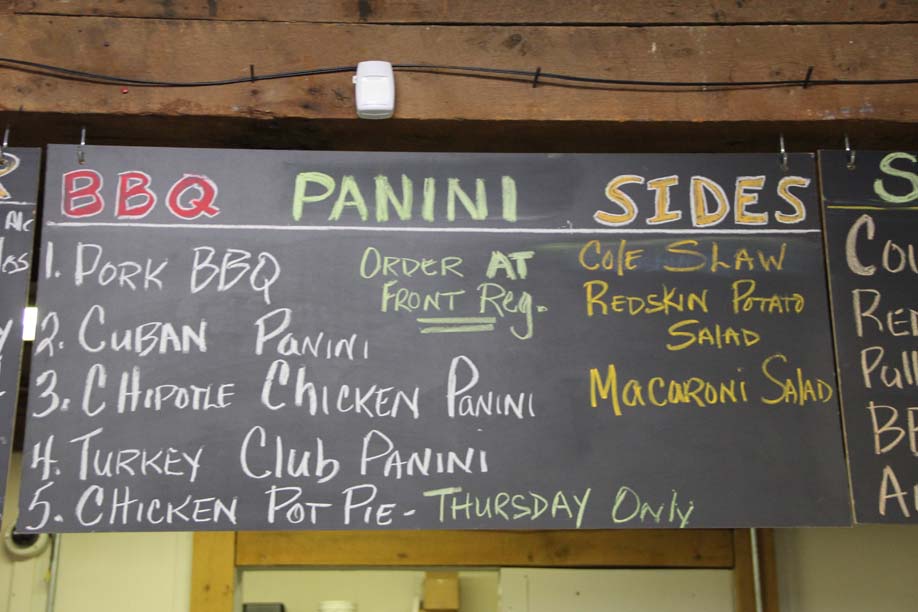 BBQ PANINI SIDES
1. PORK BBQ
2. CUBAN PANINI
3. CHIPOTLE CHICKEN PANINI
4. TURKEY Club PANINI
5. CHICKEN POT PIE - THURSDAY Only
ORDER AT
FRONT Reg.
Cole SLAW
REDSKIN POTATO
SALAD
MACARONI SALAD